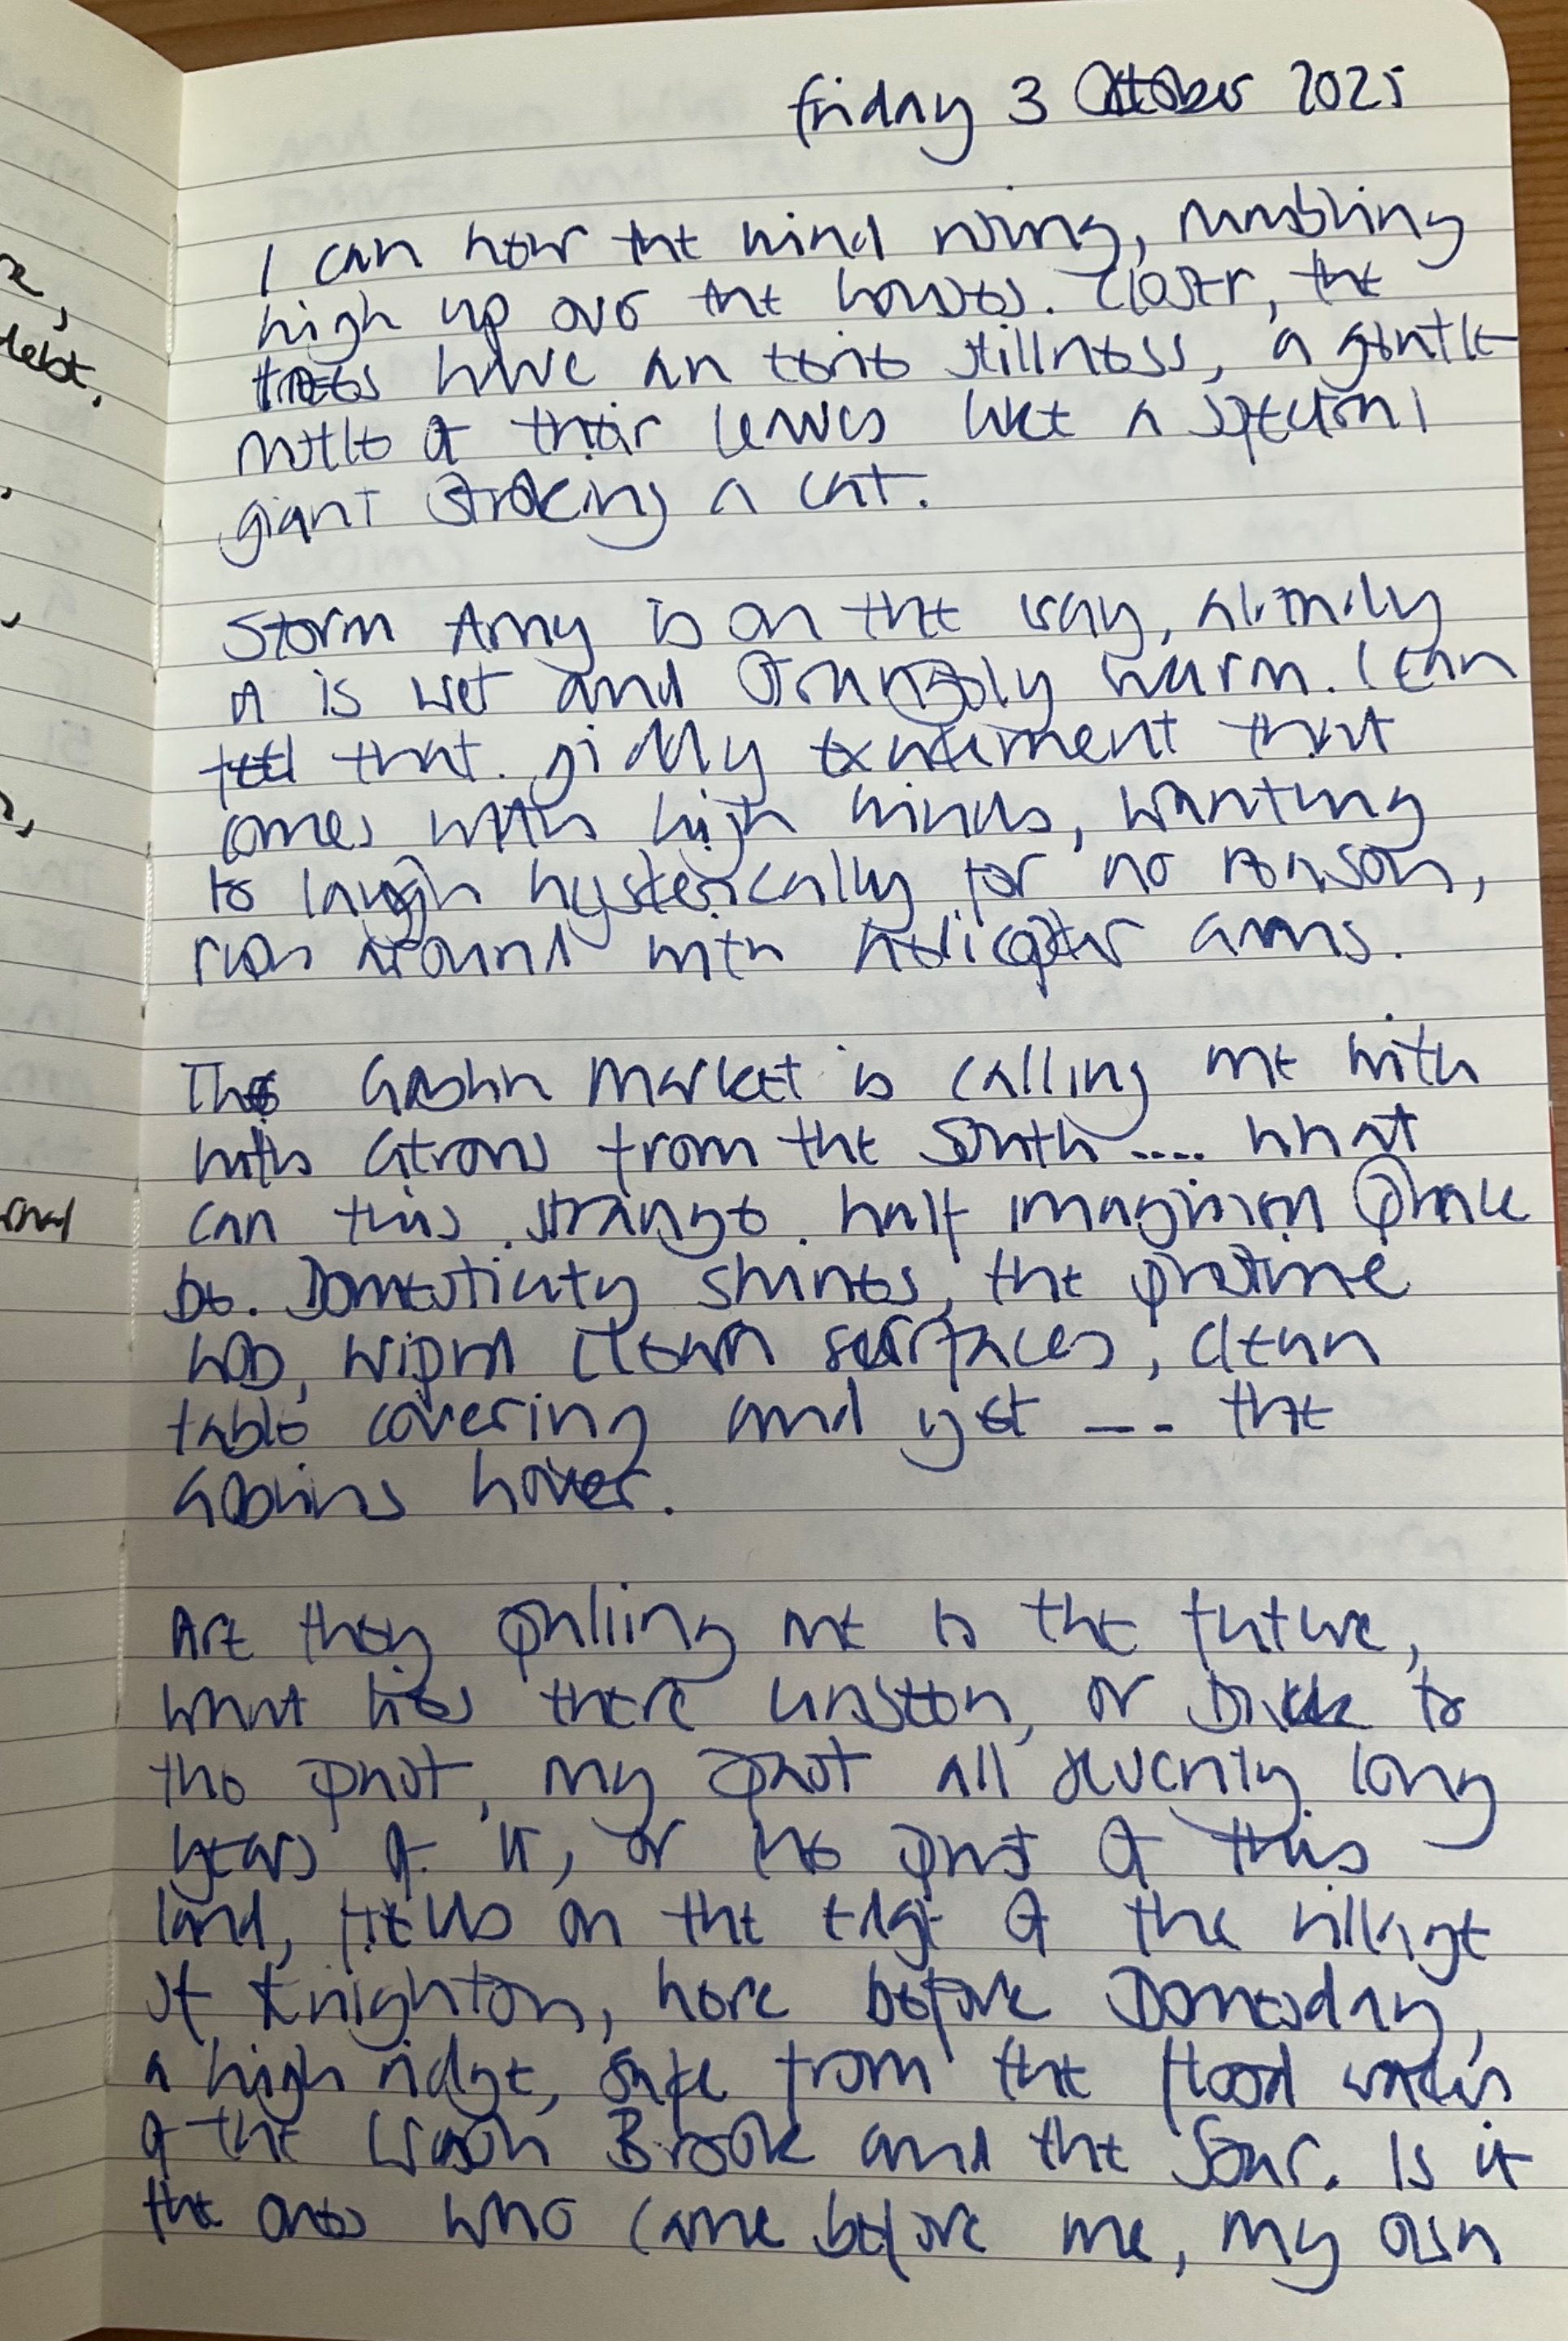 friday 3 October 2025
I can hear the wind rising, rumbling
high up over the houses. Closer, the
trees have an eerie stillness, a gentle
rustle of their leaves like a spectral
giant stroking a cat.
Storm Amy is on the way, already
it is wet and strangely warm. I can
feel that giddy excitement that
comes with high winds, wanting
to laugh hysterically for no reason,
run around with helicopter arms.
The Goblin Market is calling me with
its citrons from the South .... what
can this strange half imagined place
be. Domesticity shines, the pristine
hob, wiped down surfaces, clean
table covering and yet --- the
Goblins hover.
Are they pulling me to the future,
what lies there unseen, or back to
the past, my past all seventy long
years of it, or the past of this
land, fields on the edge of the village
of Knighton, here before Domesday,
a high ridge, safe from the flood waters
of the Wash Brook and the Soar. Is it
the ones who came before me, my own
debt,